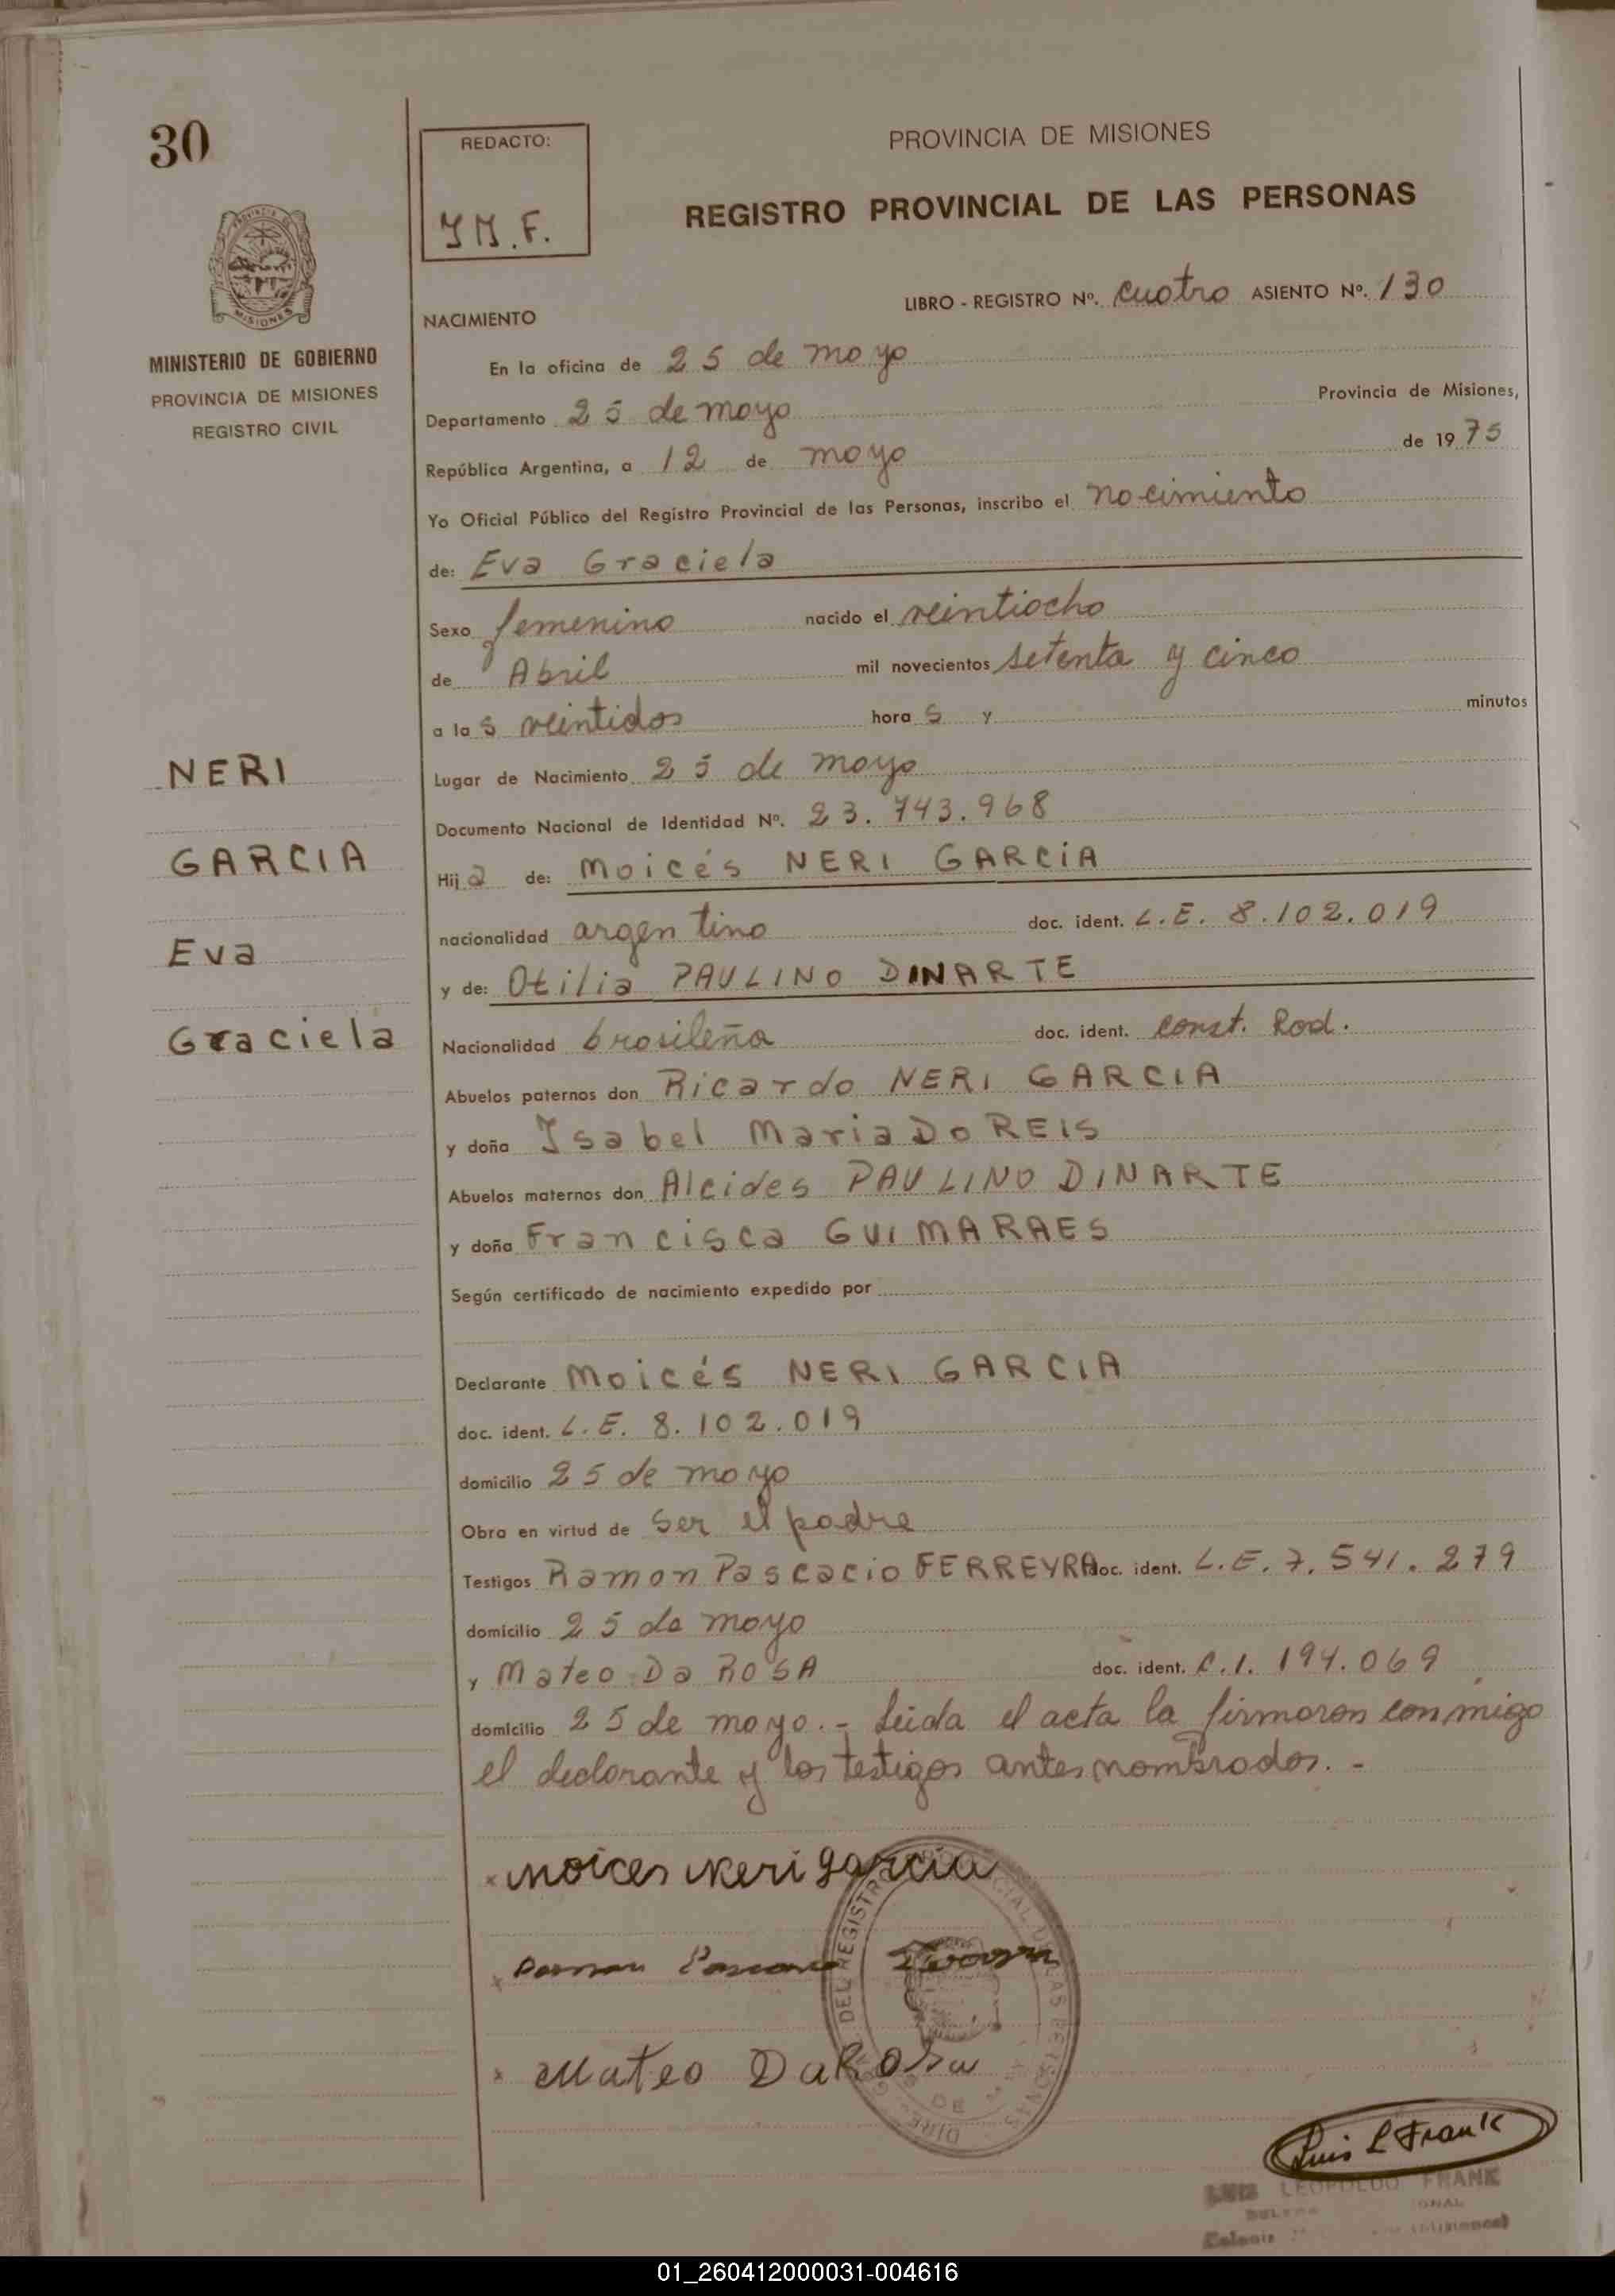 30
REDACTO:
J M. F.
PROVINCIA DE MISIONES
REGISTRO PROVINCIAL DE LAS PERSONAS
LIBRO - REGISTRO Nº. cuatro ASIENTO Nº. 130
MISIONES
MINISTERIO DE GOBIERNO
PROVINCIA DE MISIONES
REGISTRO CIVIL
NACIMIENTO
En la oficina de 25 de mayo
Departamento 25 de mayo Provincia de Misiones,
República Argentina, a 12 de mayo de 1975
Yo Oficial Público del Registro Provincial de las Personas, inscribo el nacimiento
de: Eva Graciela
Sexo femenino nacido el veintiocho
de Abril mil novecientos setenta y cinco
a las veintidos horas y minutos
Lugar de Nacimiento 25 de mayo
Documento Nacional de Identidad Nº. 23.743.968
Hija de: Moicés NERI GARCÍA
nacionalidad argentino doc. ident. L.E. 8.102.019
y de: Otilia PAULINO DINARTE
Nacionalidad brasileña doc. ident. const. Rad.
Abuelos paternos don Ricardo NERI GARCIA
y doña Isabel Maria Do REIS
Abuelos maternos don Alcides PAULINO DINARTE
y doña Francisca GUIMARAES
Según certificado de nacimiento expedido por
Declarante Moicés NERI GARCIA
doc. ident. L.E. 8.102.019
domicilio 25 de mayo
Obra en virtud de ser el padre
Testigos Ramon Pascacio FERREYRA doc. ident. L.E. 7.541.279
domicilio 25 de mayo
y Mateo Da ROSA doc. ident. C.I. 194.069
domicilio 25 de mayo.- Leida el acta la firmaron conmigo
el declarante y los testigos antes nombrados.-
NERI
GARCIA
Eva
Graciela
x Moices Neri garcia
x Mateo DaRosa
Luis L Frank
LUIS LEOPOLDO FRANK
01_260412000031-004616